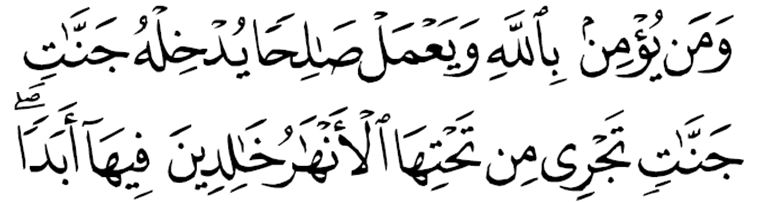 وَمَن يُؤْمِنۢ بِٱللَّهِ وَيَعْمَلْ صَـٰلِحًا يُدْخِلْهُ جَنَّـٰتٍ
جَنَّـٰتٍ تَجْرِى مِن تَحْتِهَا ٱلْأَنْهَـٰرُ خَـٰلِدِينَ فِيهَآ أَبَدًا ۖ